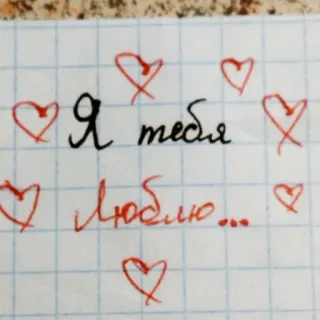 Я тебя
Люблю...